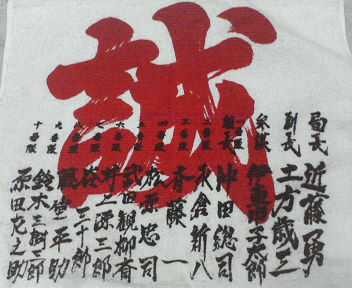 誠
局長 近藤勇
副長 土方歳三
参謀 伊東甲子太郎
組長
一番隊 沖田総司
二番隊 永倉新八
三番隊 斉藤一
四番隊 松原忠司
五番隊 武田観柳斎
六番隊 井上源三郎
七番隊 谷三十郎
八番隊 藤堂平助
九番隊 鈴木三樹三郎
十番隊 原田左之助